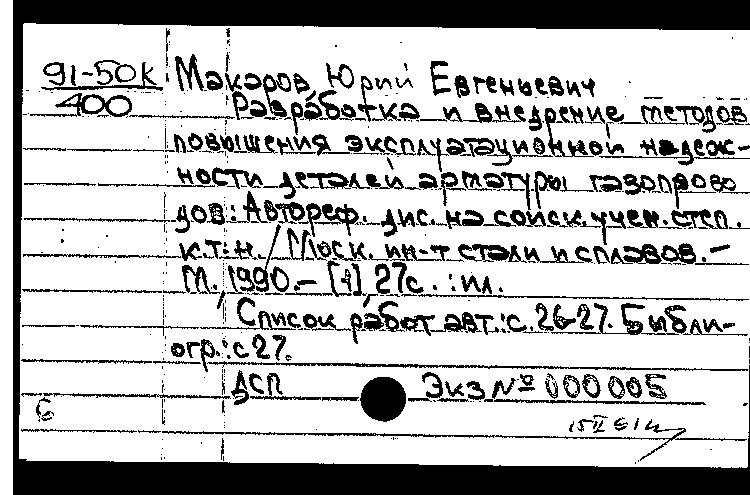 91-50к
400
Макаров, Юрий Евгеньевич
Разработка и внедрение методов
повышения эксплуатационной надеж-
ности деталей арматуры газопрово
дов: Автореф. дис. на соиск. учен. степ.
к.т.н. / Моск. ин-т стали и сплавов. –
М., 1990. – [1], 27с. : ил.
Список работ авт.: с. 26-27. Библи-
огр.: с 27.
ДСП Экз № 000005
6